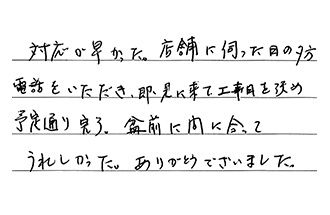 対応が早かった。店舗に伺った日の夕方
電話をいただき、即、見に来て工事日を決め
予定通り完了。盆前に間に合って
うれしかった。ありがとうございました。